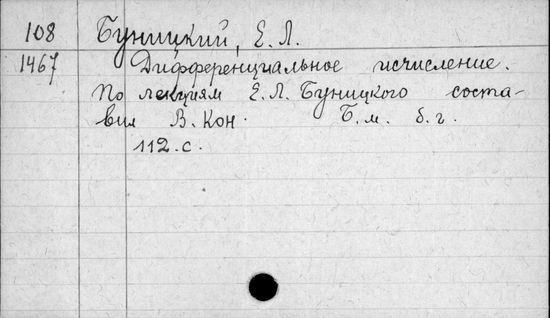 108 Буницкий, Е. Л.
1467 Дифференциальное исчисление.
По лекциям Е. Л. Буницкого соста-
вил В. Кон. Б. м. б. г.
112. с.